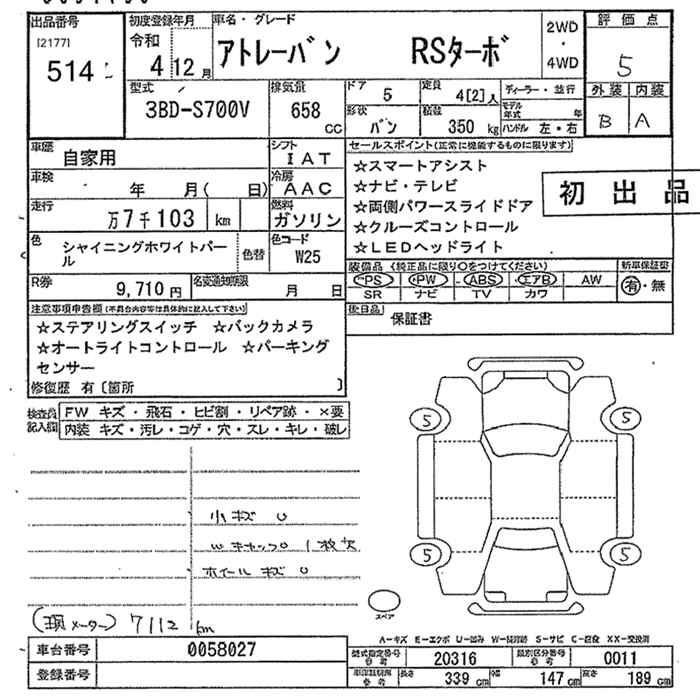 出品番号
[2177]
514
初度登録年月
令和
4 12月
車名・グレード
アトレーバン RSターボ
2WD
・
4WD
評価点
5
外装 内装
B A
型式
3BD-S700V
排気量
658
CC
ドア
5
定員
4[2]人
形状
バン
積載
350 kg
ディーラー・並行
モデル年式 年
ハンドル 左・右
車歴
自家用
シフト
IAT
車検
年 月( 日)
冷房
AAC
走行
万7千103 km
燃料
ガソリン
色
シャイニングホワイトパール
色替
色コード
W25
R券
9,710円
名変通知期限
月 日
セールスポイント(正常に機能するものに限ります)
☆スマートアシスト
☆ナビ・テレビ
☆両側パワースライドドア
☆クルーズコントロール
☆LEDヘッドライト
初出品
装備品 (純正品に限り○をつけてください)
PS PW ABS エアB AW
SR ナビ TV カワ
新車保証書
有・無
後日品
保証書
注意事項申告欄(不具合内容等は具体的に記入して下さい)
☆ステアリングスイッチ ☆バックカメラ
☆オートライトコントロール ☆パーキング
センサー
修復歴 有〔箇所 〕
検査員記入欄
FW キズ・飛石・ヒビ割・リペア跡・×要
内装 キズ・汚レ・コゲ・穴・スレ・キレ・破レ
小キズ U
Wキャップ 1枚欠
ホイールキズ U
(現メーター) 7112 km
5
5
5
5
スペア
A-キズ E-エクボ U-凹み W-補修跡 S-サビ C-腐食 XX-交換済
車台番号
0058027
登録番号
型式指定番号
参考
20316
類別区分番号
参考
0011
車庫証明用
参考
長さ
339 cm
幅
147 cm
高さ
189 cm